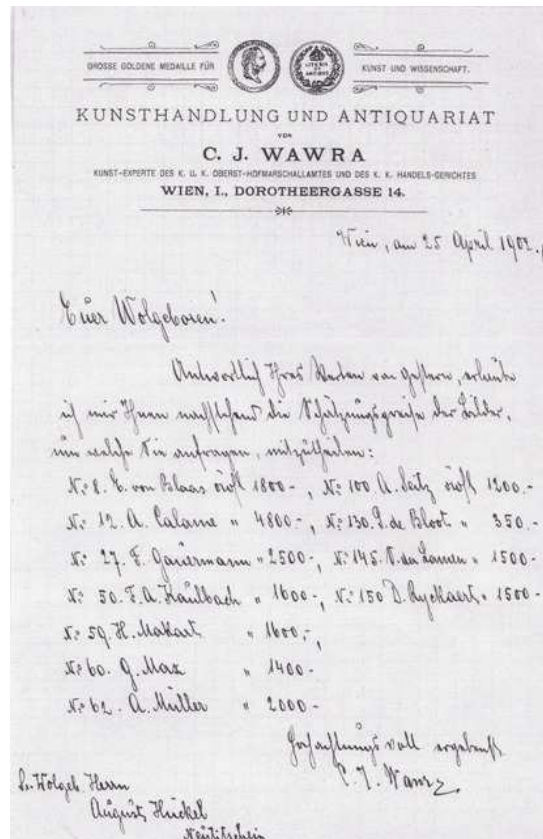 GROSSE GOLDENE MEDAILLE FÜR
KUNST UND WISSENSCHAFT.
LITERIS ET ARTIBUS
KUNSTHANDLUNG UND ANTIQUARIAT
VON
C. J. WAWRA
KUNST-EXPERTE DES K. U. K. OBERST-HOFMARSCHALLAMTES UND DES K. K. HANDELS-GERICHTES
WIEN, I., DOROTHEERGASSE 14.
Wien, am 25 April 1902.
Euer Wolgeboren!
Antwortlich Ihres Werten von gestern, erlaube
ich mir Ihnen nachstehend die Schätzungspreise der Bilder,
um welche Sie anfragen, mitzutheilen:
No 8. E. von Blaas 1800.-, No 100 A. Seitz 1200.-
No 12. A. Calame " 4800.-, No 130. P. de Bloot " 350.-
No 27. F. Gauermann " 2500.-, No 145. V. der Lamen " 1500-
No 50. F. A. Kaulbach " 1600-, No 150 D. Ryckaert " 1500-
No 59. H. Makart " 1600,-,
No 60. G. Max " 1400-
No 62. A. Müller " 2000-
Hochachtungsvoll ergebenst
C. J. Wawra
Sr. Wolgeb. Herrn
August Hückel
Neutitschein